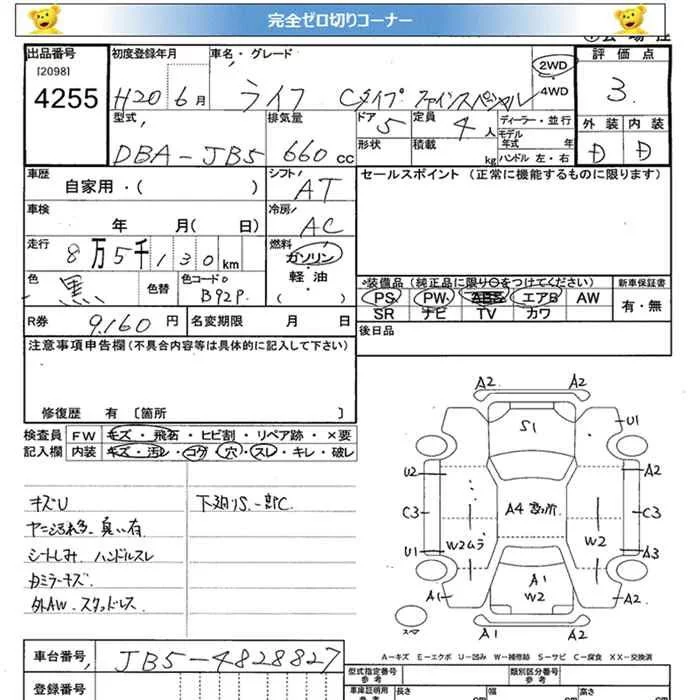 完全ゼロ切りコーナー
出品番号 初度登録年月 車名・グレード 評価点
[2098]
4255 H20 6月 ライフ Cタイプ ファインスペシャル 2WD 4WD 3.
型式 排気量 ドア 定員 ディーラー・並行 外装 内装
DBA-JB5 660cc 5 4人 モデル年式 年 D D
形状 積載 kg ハンドル 左・右
車歴 シフト セールスポイント (正常に機能するものに限ります)
自家用・( ) AT
車検 冷房
年 月( 日) AC
走行 燃料
8万5千130km ガソリン
軽・油
( )
色 黒 色替 色コードNo B92P 装備品(純正品に限り○をつけてください) 新車保証書
PS PW ABS エアB AW 有・無
SR ナビ TV カワ
R券 9,160円 名変期限 月 日 後日品
注意事項申告欄(不具合内容等は具体的に記入して下さい)
修復歴 有 [箇所 ]
検査員 FW キズ・飛石・ヒビ割・リペア跡・×要
記入欄 内装 キズ・汚レ・コゲ・穴・スレ・キレ・破レ
キズU 下廻りS.一部C.
ヤニ汚れ多、臭い有
シートしみ、ハンドルスレ
カミラーキズ
外AW、スタッドレス
A2 A2
S1 U1
U2 A2
C3 A4 C3
W2ムラ W2
U1 A3
A1
W2
A1 A2
スペア
A1 A2
A=キズ E=エクボ U=凹み W=補修跡 S=サビ C=腐食 XX=交換済
車台番号 JB5-4828827
型式指定番号 参考 類別区分番号 参考
登録番号 車庫証明用 参考 長さ cm 幅 cm 高さ cm